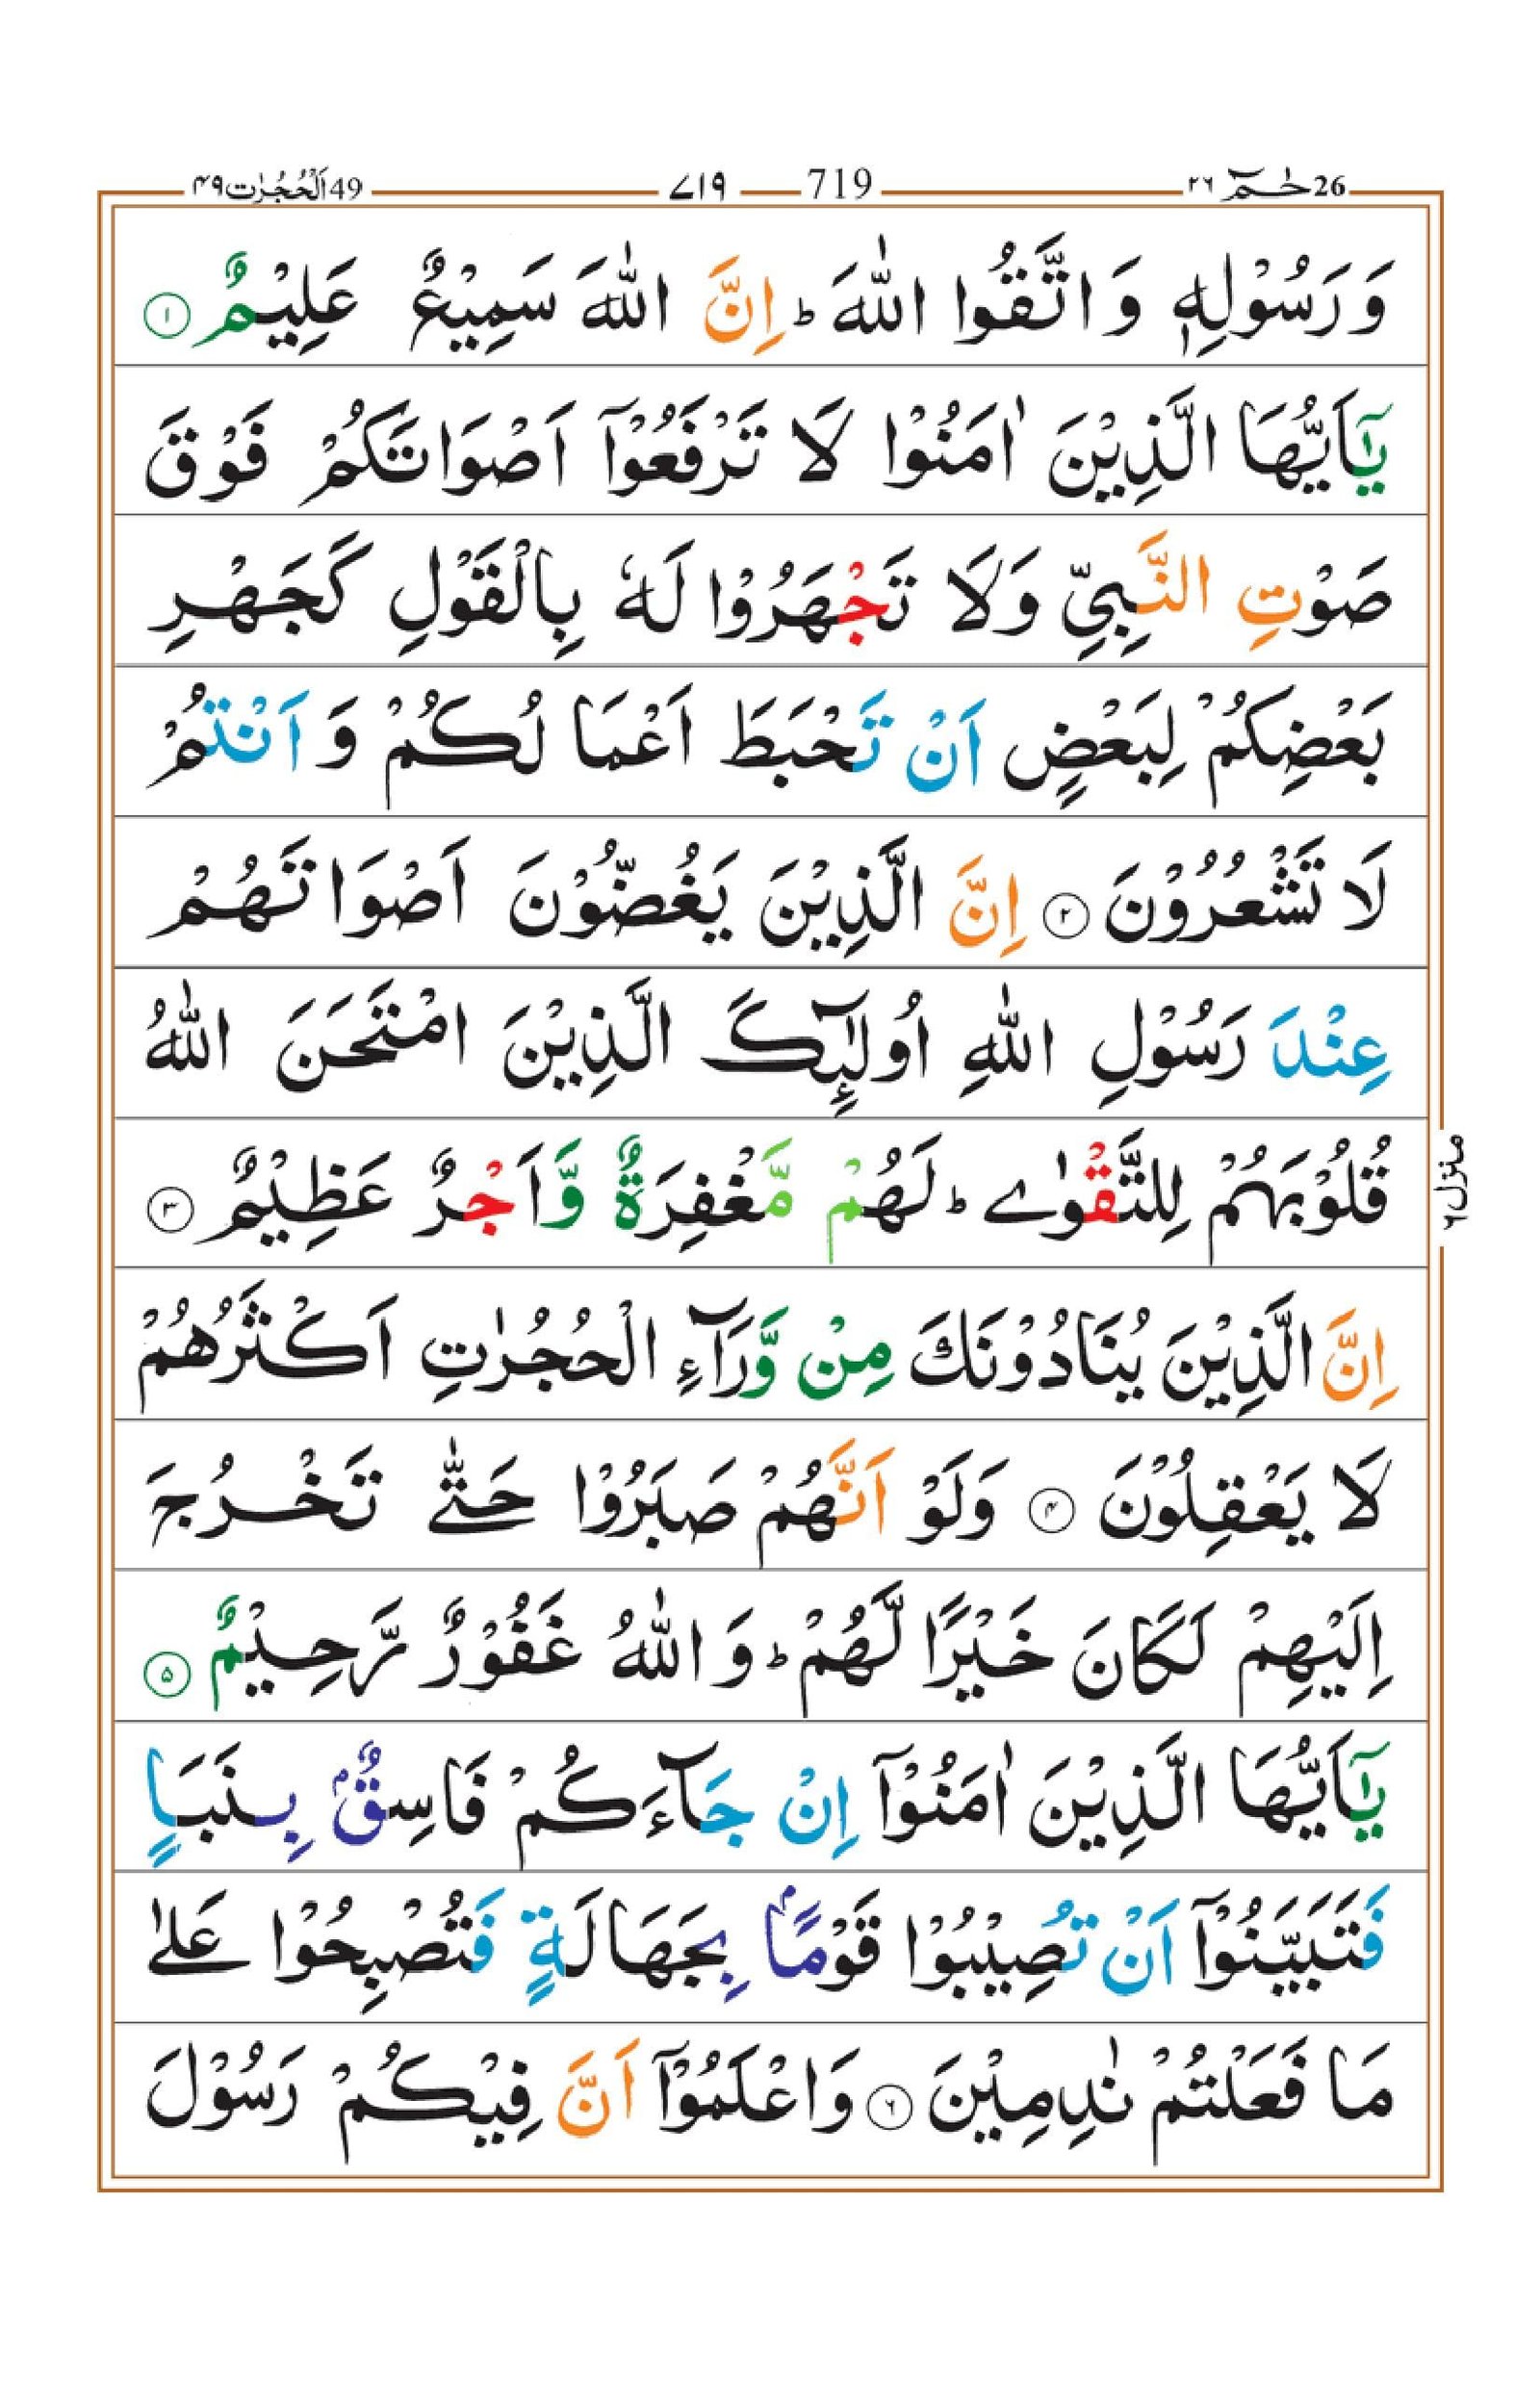 26 حٰـمٓ ٢٦ 719 ۷۱۹ 49 اَلْحُجُرٰت ۴۹
وَ رَسُوْلِهٖ وَ اتَّقُوا اللّٰهَ ؕ اِنَّ اللّٰهَ سَمِيْعٌ عَلِيْمٌ ۱
يٰۤاَيُّهَا الَّذِيْنَ اٰمَنُوْا لَا تَرْفَعُوْۤا اَصْوَاتَكُمْ فَوْقَ
صَوْتِ النَّبِيِّ وَلَا تَجْهَرُوْا لَهٗ بِالْقَوْلِ كَجَهْرِ
بَعْضِكُمْ لِبَعْضٍ اَنْ تَحْبَطَ اَعْمَا لُكُمْ وَ اَنْتُمْ
لَا تَشْعُرُوْنَ ۲ اِنَّ الَّذِيْنَ يَغُضُّوْنَ اَصْوَا تَهُمْ
عِنْدَ رَسُوْلِ اللّٰهِ اُولٰٓئِكَ الَّذِيْنَ امْتَحَنَ اللّٰهُ
قُلُوْبَهُمْ لِلتَّقْوٰے ؕ لَهُمْ مَّغْفِرَةٌ وَّاَجْرٌ عَظِيْمٌ ۳
اِنَّ الَّذِيْنَ يُنَادُوْنَكَ مِنْ وَّرَآءِ الْحُجُرٰتِ اَكْثَرُهُمْ
لَا يَعْقِلُوْنَ ۴ وَلَوْ اَنَّهُمْ صَبَرُوْا حَتّٰے تَخْرُجَ
اِلَيْهِمْ لَكَانَ خَيْرًا لَّهُمْ ؕ وَ اللّٰهُ غَفُوْرٌ رَّحِيْمٌ ۵
يٰۤاَيُّهَا الَّذِيْنَ اٰمَنُوْۤا اِنْ جَآءَكُمْ فَاسِقٌۢ بِنَبَاٍ
فَتَبَيَّنُوْۤا اَنْ تُصِيْبُوْا قَوْمًۢا بِجَهَالَةٍ فَتُصْبِحُوْا عَلٰے
مَا فَعَلْتُمْ نٰدِمِيْنَ ۶ وَاعْلَمُوْۤا اَنَّ فِيْكُمْ رَسُوْلَ
منزل ۶